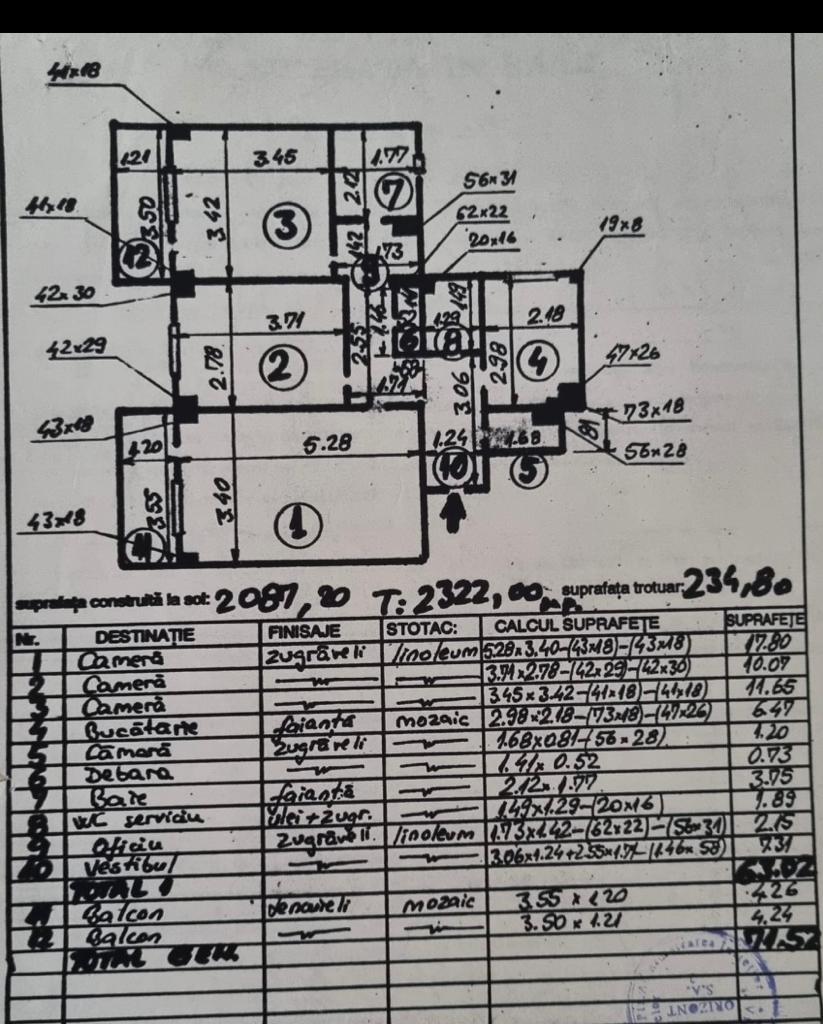 41x18
1.21
3.45
1.77
2.12
7
56x31
41x18
3.50
3.42
3
62x22
20x16
19x8
12
1.42
1.73
9
42x30
3.71
2.55
1.46
6
1.29
1.49
8
2.18
2.98
4
42x29
2.78
2
1.71
3.06
47x26
73x18
43x18
1.20
5.28
1.24
1.68
81
56x28
10
5
3.55
3.40
1
43x18
11
suprafața construită la sol: 2087,20 T: 2322,00 m.p. suprafața trotuar: 234,80
Nr. DESTINAȚIE FINISAJE STOTAC: CALCUL SUPRAFEȚE SUPRAFEȚE
1 Cameră zugrăveli linoleum 5.28x3.40-(43x18)-(43x18) 17.80
2 Cameră —"— —"— 3.71x2.78-(42x29)-(42x30) 10.07
3 Cameră —"— —"— 3.45x3.42-(41x18)-(41x18) 11.65
4 Bucătărie faianță mozaic 2.98x2.18-(73x18)-(47x26) 6.47
5 Cămară zugrăveli —"— 1.68x081-(56x28) 1.20
6 Debara —"— —"— 1.41x0.52 0.73
7 Baie faianță —"— 2.12x1.77 3.75
8 WC serviciu ulei+zugr. —"— 1.49x1.29-(20x16) 1.89
9 Oficiu zugrăveli linoleum 1.73x1.42-(62x22)-(56x31) 2.15
10 Vestibul —"— —"— 3.06x1.24+2.55x1.71-(1.46x58) 7.31
TOTAL 1 63.02
11 Balcon mozaic 3.55 x 1.20 4.26
12 Balcon —"— —"— 3.50 x 1.21 4.24
TOTAL GEN. 71.52
ORIZONT
S.A.